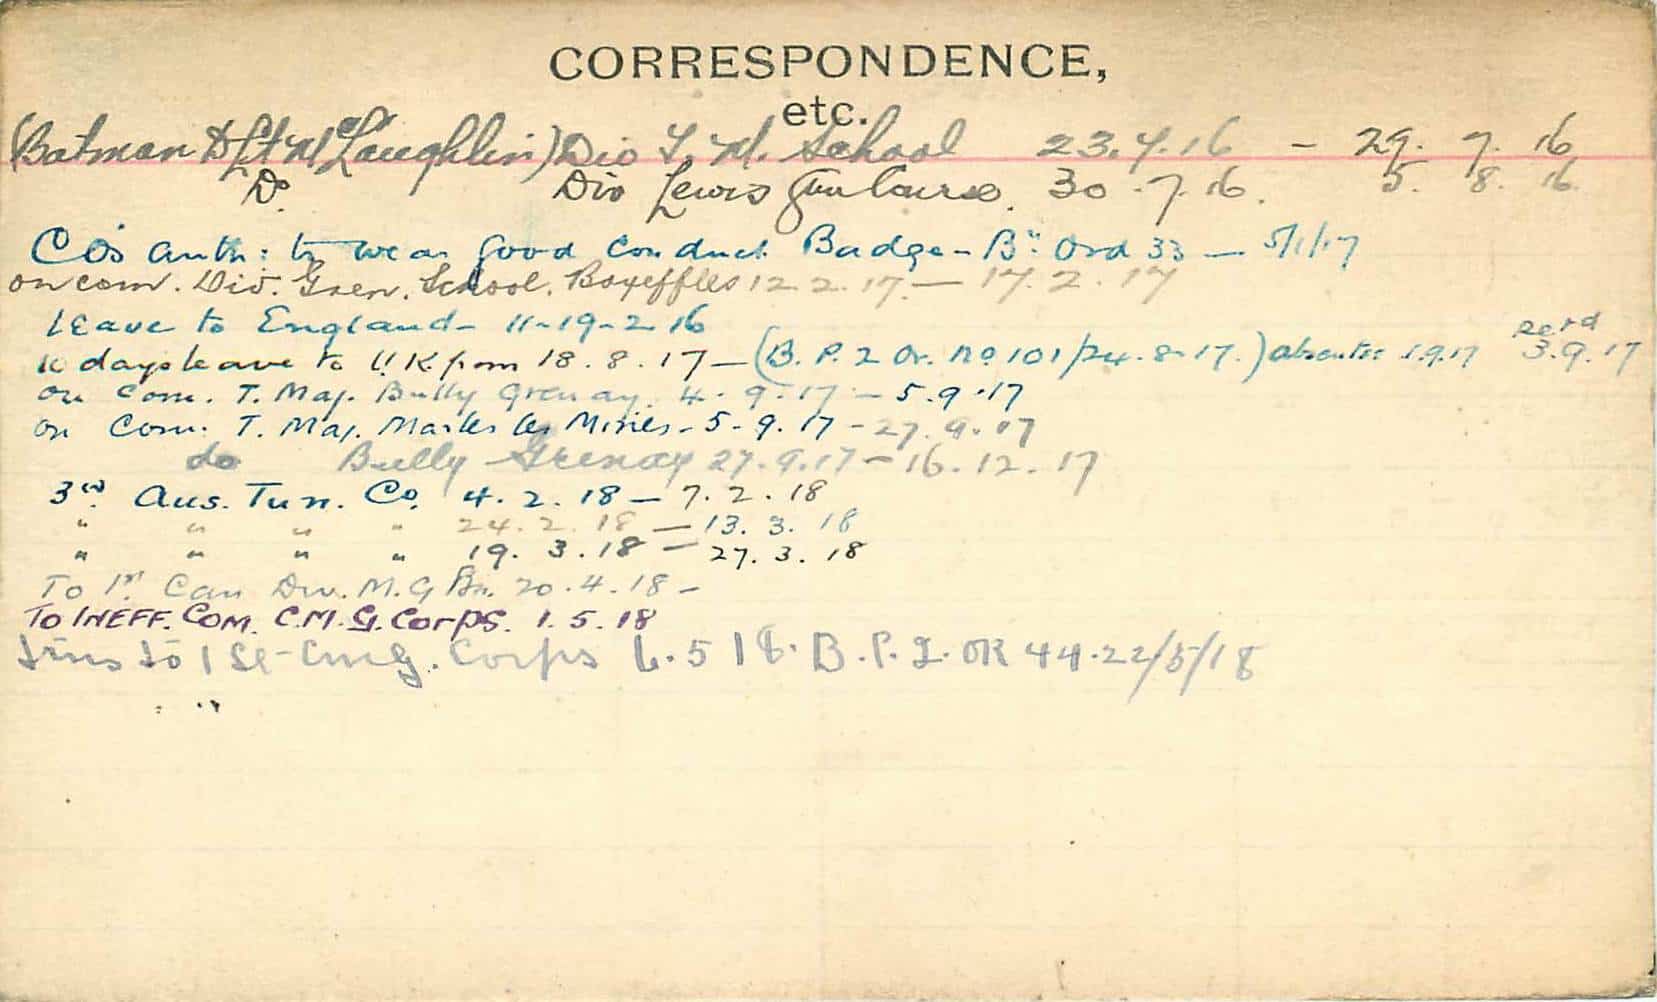 CORRESPONDENCE,
etc.
(Batman to Lt McLaughlin) Div T. M. School 23.7.16 - 29. 7. 16
Do Div Lewis Gun Course. 30.7.16. 5. 8. 16.
CO's auth: to wear Good Conduct Badge - Bn Ord 33 - 5/1/17
on com. Div. Gren. School. Boyeffles 12.2.17. - 17.2.17
Leave to England - 11-19-2-16
10 days leave to U.K. from 18.8.17 - (B. P. 2 Or. No 101/24.8.17.) absentee 1.9.17 3.9.17
on Com. T. Maj. Bully Grenay. 4.9.17 - 5.9.17
on Com. T. Maj. Marles les Mines - 5-9.17 - 27.9.17
do Bully Grenay 27.9.17 - 16.12.17
3rd Aus. Tun. Co. 4.2.18 - 7.2.18
" " " " 24.2.18 - 13.3.18
" " " " 19.3.18 - 27.3.18
To 1st Can Div. M.G Bn. 20.4.18 -
To INEFF. COM. C.M.G. Corps. 1.5.18
to CMG. Corps 5 18. B.P.2. OR 44.22/5/18